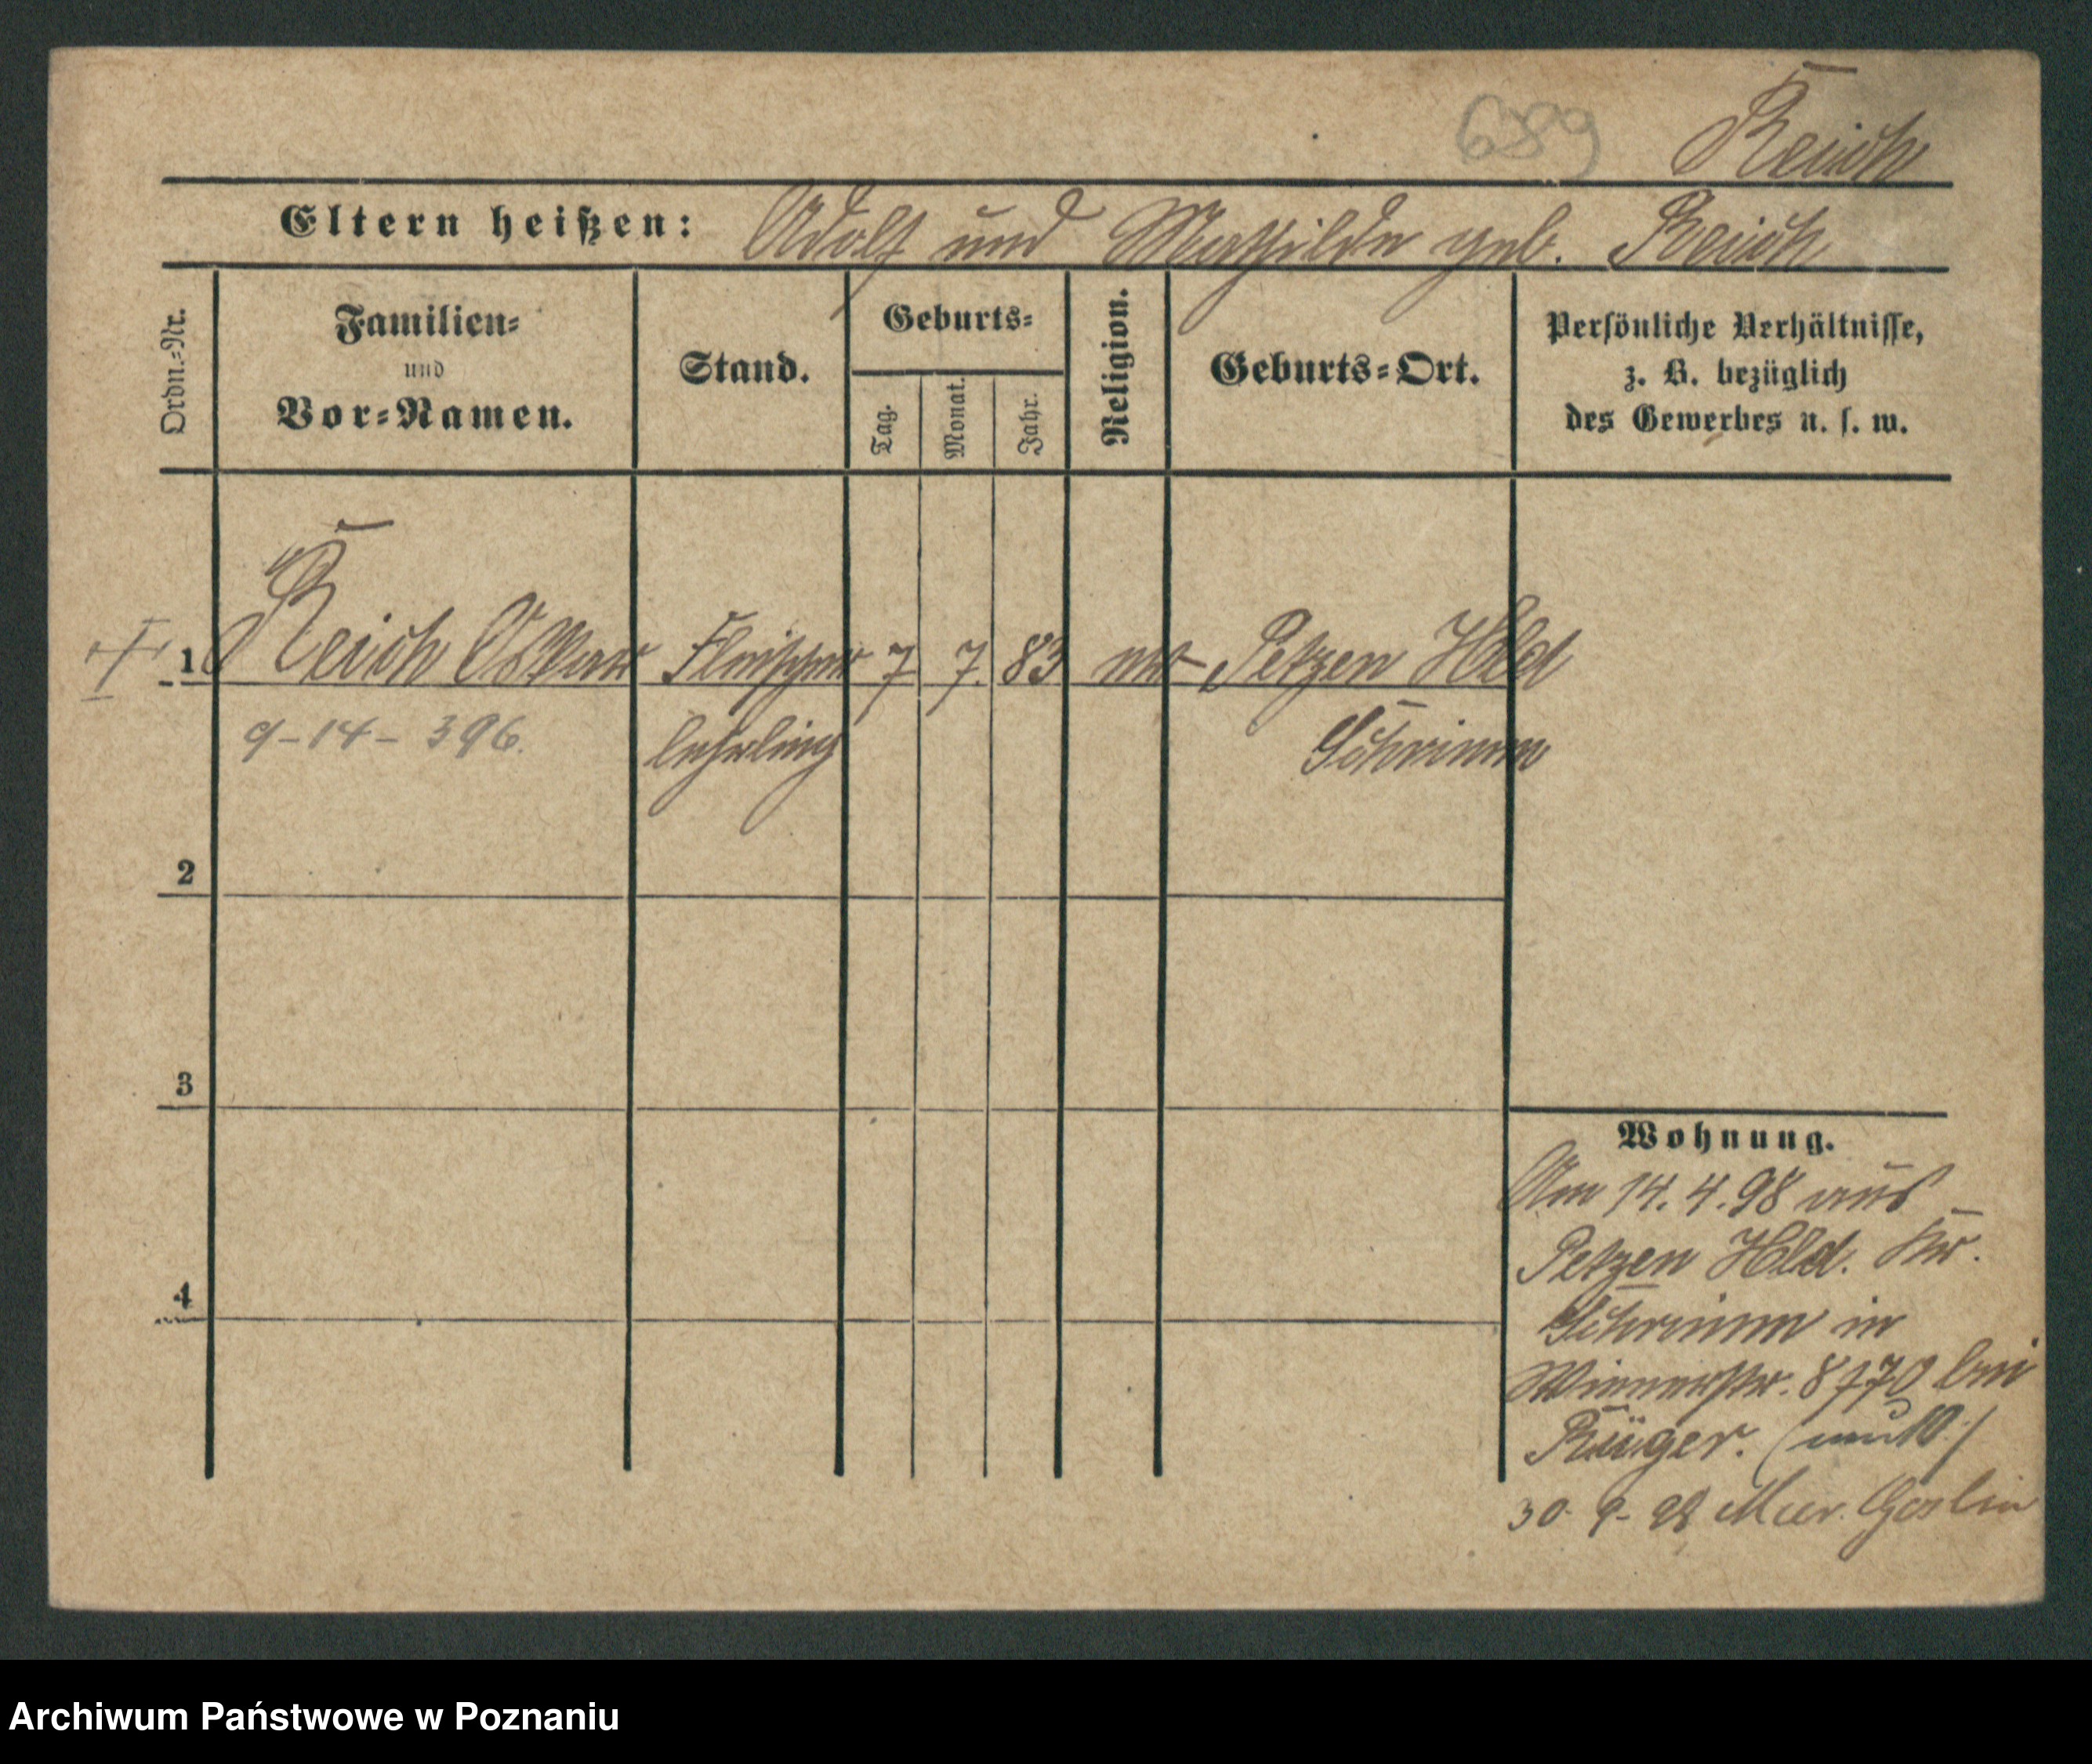 689 Reich
Eltern heißen: Adolf und Mathilde geb. Reich
Ordn.=Nr.
Familien=
und
Vor=Namen.
Stand.
Geburts=
Tag.
Monat.
Jahr.
Religion.
Geburts=Ort.
Persönliche Verhältnisse,
z. B. bezüglich
des Gewerbes u. s. w.
1 Reich Oskar Fleischer 7 7. 83 Petzen Hld
9-14-396. lehrling Schrimm
2
3
4
Wohnung.
Am 14. 4. 98 aus
Petzen Hld. Kr.
Schrimm in
8 bei
Krüger.
30. 9. 98 Mur. Goslin
Archiwum Państwowe w Poznaniu